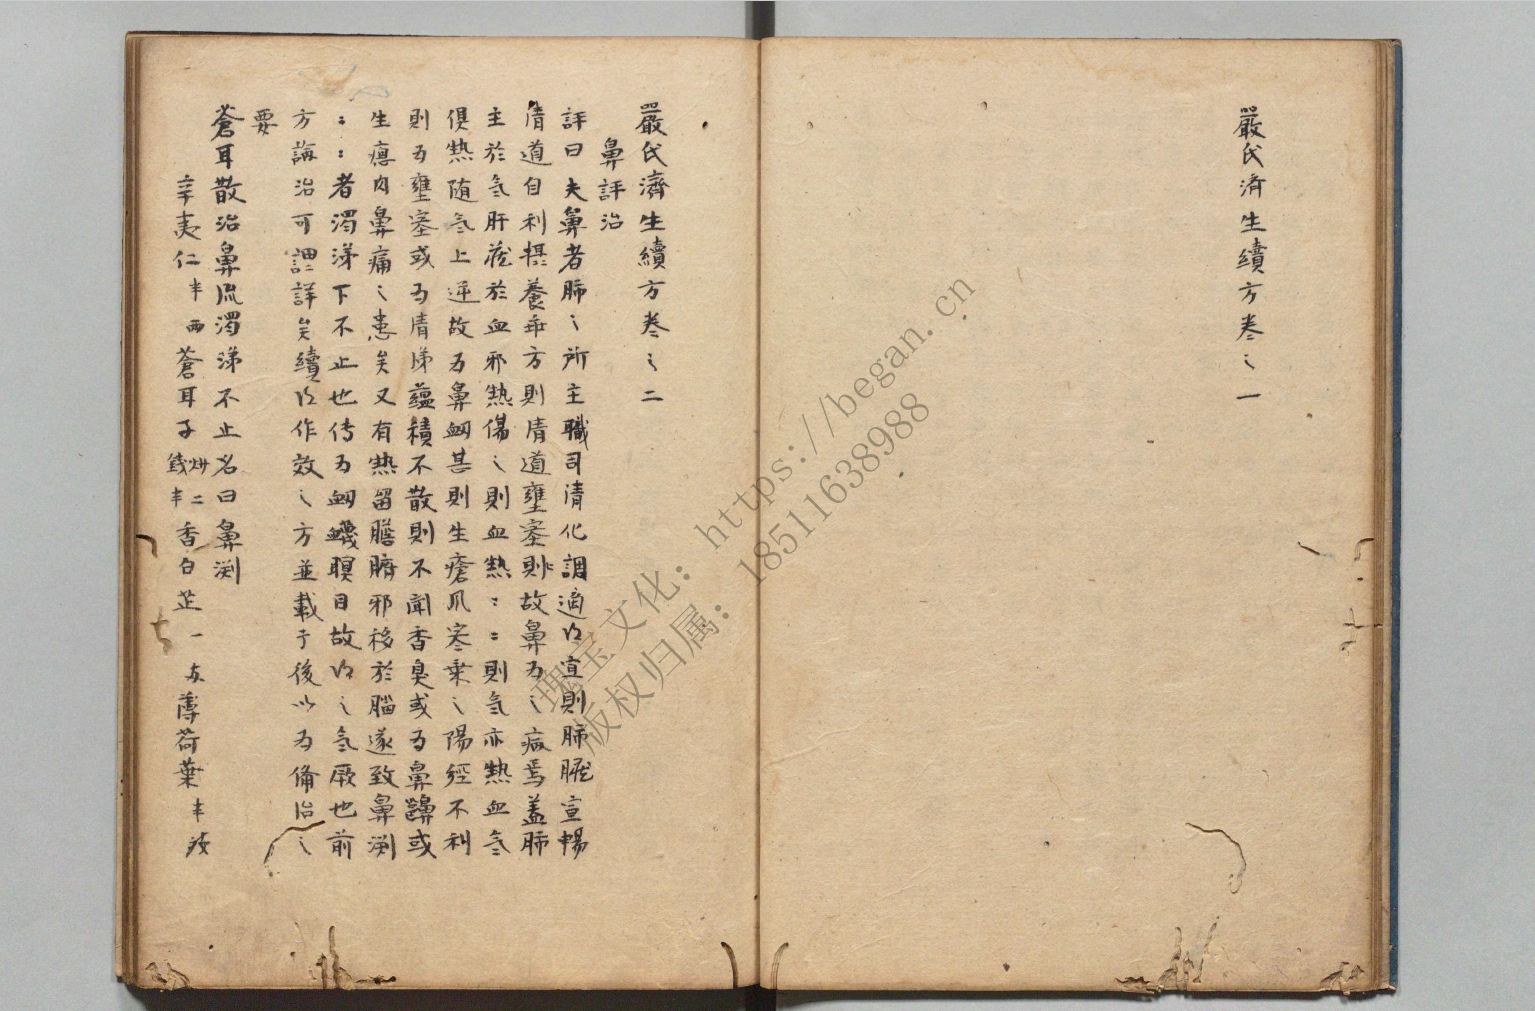 嚴氏濟生續方卷之一
嚴氏濟生續方卷之二
鼻評治
評曰夫鼻者肺之所主職司清化調適得宜則肺臟宣暢
清道自利摂養乖方則清道壅塞則故鼻为之病焉盖肺
主於气肝蔵於血邪熱傷之則血熱〻〻則气亦熱血气
俱熱随气上逆故为鼻衄甚則生瘡风寒乗之陽経不利
則为壅塞或为清涕蕴積不散則不聞香臭或为鼻齆或
生瘜肉鼻痛之患矣又有熱留膽腑邪移於腦遂致鼻渕
〻〻者濁涕下不止也传为衄衊瞑目故得之气厥也前
方論治可謂詳矣續得作效之方並載于後以为俻治之
要
蒼耳散治鼻流濁涕不止名曰鼻渕
辛夷仁半两蒼耳子炒二钱半香白芷一两薄荷葉半钱
瑰宝文化：https://began.cn
版权归属：18511638988